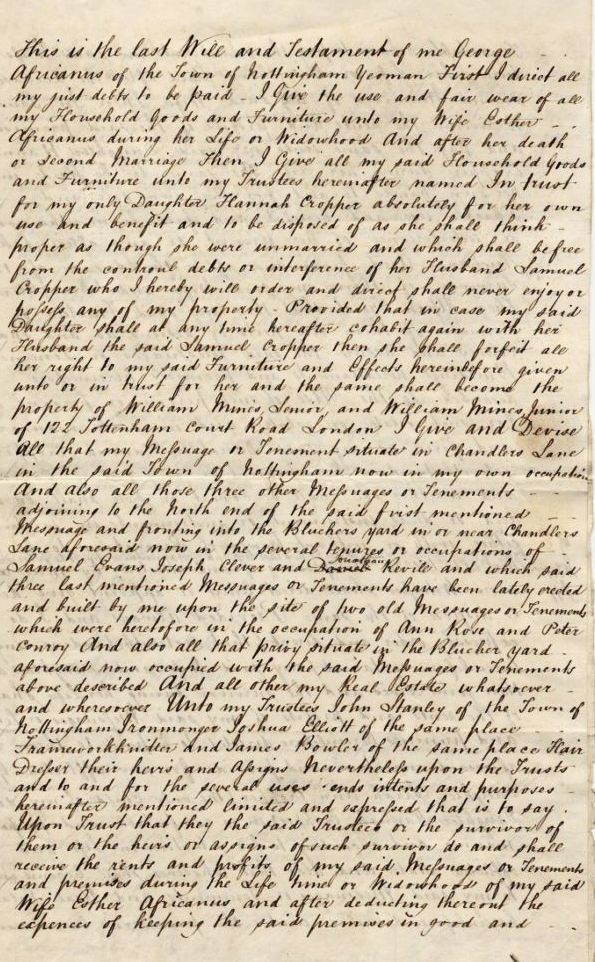 This is the last Will and Testament of me George
Africanus of the Town of Nottingham Yeoman First I direct all
my just debts to be paid - I Give the use and fair wear of all
my Household Goods and Furniture unto my Wife Esther
Africanus during her Life or Widowhood And after her death
or Second Marriage Then I Give all my said Household Goods
and Furniture unto my Trustees hereinafter named In trust
for my only Daughter Hannah Cropper absolutely for her own
use and benefit and to be disposed of as she shall think
proper as though she were unmarried and which shall be free
from the controul debts or interference of her Husband Samuel
Cropper who I hereby will order and direct shall never enjoy or
possess any of my property - Provided that in case my said
Daughter shall at any time hereafter cohabit again with her
Husband the said Samuel Cropper then she shall forfeit all
her right to my said Furniture and Effects hereinbefore given
unto or in trust for her and the same shall become the
property of William Mines, Senior, and William Mines, Junior
of 122 Tottenham Court Road London I Give and Devise
All that my Messuage or Tenement situate in Chandlers Lane
in the said Town of Nottingham now in my own occupation
And also all those three other Messuages or Tenements
adjoining to the North end of the said first mentioned
Messuage and fronting into the Bluchers yard in or near Chandlers
Lane aforesaid now in the several tenures or occupations of
Samuel Evans Joseph Clever and Jonathan Revile and which said
three last mentioned Messuages or Tenements have been lately erected
and built by me upon the site of two old Messuages or Tenements
which were heretofore in the occupation of Ann Rose and Peter
Conroy And also all that privy situate in the Blucher yard
aforesaid now occupied with the said Messuages or Tenements
above described And all other my Real Estate whatsoever
and wheresoever Unto my Trustees John Stanley of the Town of
Nottingham Ironmonger Joshua Elliott of the same place
Frameworkknitter and James Bowler of the same place Hair
Dresser their heirs and Assigns Nevertheless upon the Trusts
and to and for the several uses ends intents and purposes
hereinafter mentioned limited and expressed that is to say.
Upon Trust that they the said Trustees or the survivor of
them or the heirs or assigns of such survivor do and shall
receive the rents and profits of my said Messuages or Tenements
and premises during the Life time or Widowhood of my said
Wife Esther Africanus and after deducting thereout the
expences of keeping the said premises in good and